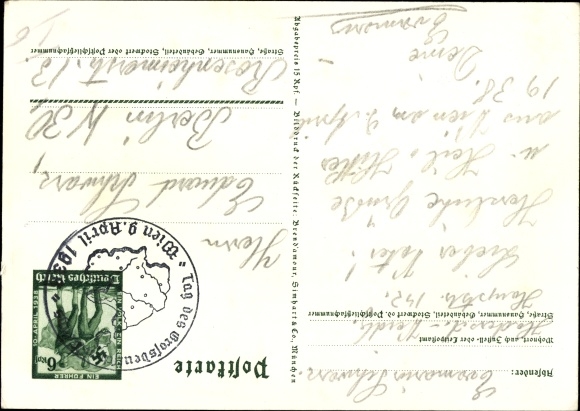 Postkarte
6 Rpf
EIN FÜHRER
EIN VOLK EIN REICH
10. APRIL 1938
Deutsches Reich
Wien 9. April 193
Tag des Großdeu
Herrn
Eduard Schwarz
Berlin W 30
Rosenheimerst. 13
Straße, Hausnummer, Gebäudeteil, Stockwerk oder Postschließfachnummer
Absender:
Wohnort, auch Zustell- oder Leitpostamt
Straße, Hausnummer, Gebäudeteil, Stockwerk oder Postschließfachnummer
Hauptstr. 142.
Lieber Vater!
Herzliche Grüße
u. Heil Hitler
aus Wien am 9. April
1938.
Deine
Abgabepreis 15 Rpf. – Bilddruck der Rückseite Bruckmann, Simbart & Co., München